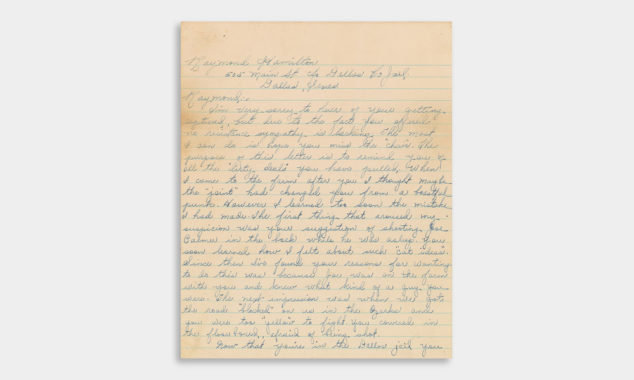 Raymond Hamilton
525 Main St c/o Dallas Co Jail
Dallas, Texas
Raymond:-
I'm very sorry to hear of your getting
captured, but due to the fact you offered
no resistence sympathy is lacking. The most
I can do is hope you miss the "chair." The
purpose of this letter is to remind you of
all the "dirty deals" you have pulled. When
I came to the farm after you I thought maybe
the "joint" had changed you from a boastful
punk. However I learned too soon the mistake
I had made. The first thing that aroused my
suspicion was your suggestion of shooting Joe
Palmer in the back while he was asleep. You
soon learned how I felt about such "cat ideas".
Since then I've found your reasons for wanting
to do this was because Joe was on the farm
with you and knew what kind of a guy you
were. The next impression was when we gots
the road "blocked" on us in the Ozarks and
you were too "yellow" to fight. You cowered in
the floorboard, afraid of being shot.
Now that you're in the Dallas jail you